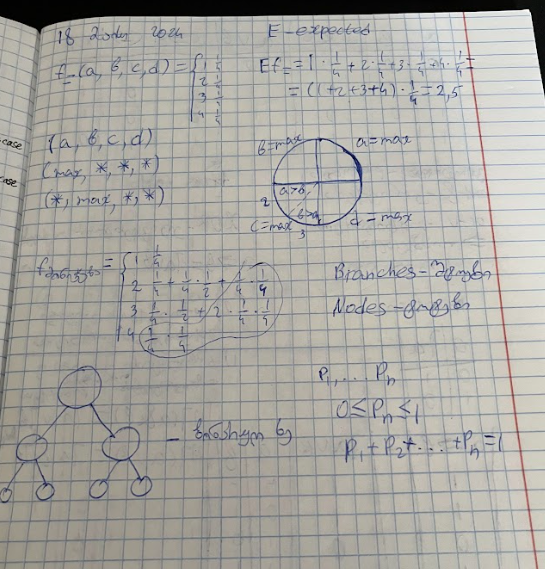 18 2024
E - expected
f=(a, b, c, d) = { 1 1/4
2 1/4
3 1/4
4 1/4
Ef= = 1 · 1/4 + 2 · 1/4 + 3 · 1/4 + 4 · 1/4 =
= (1+2+3+4) · 1/4 = 2,5
case
case
(a, b, c, d)
(max, *, *, *)
(*, max, *, *)
b=max
a=max
a>b
2
b>a
c=max
3
d=max
1 · 1/4
2 1/4 + 1/4 · 1/2 + 1/4 · 1/4
3 1/4 · 1/2 + 2 · 1/4 · 1/4
4 1/4 · 1/4
Branches -
Nodes -
P₁, ... Pₙ
0 ≤ Pₙ ≤ 1
P₁ + P₂ + ... + Pₙ = 1